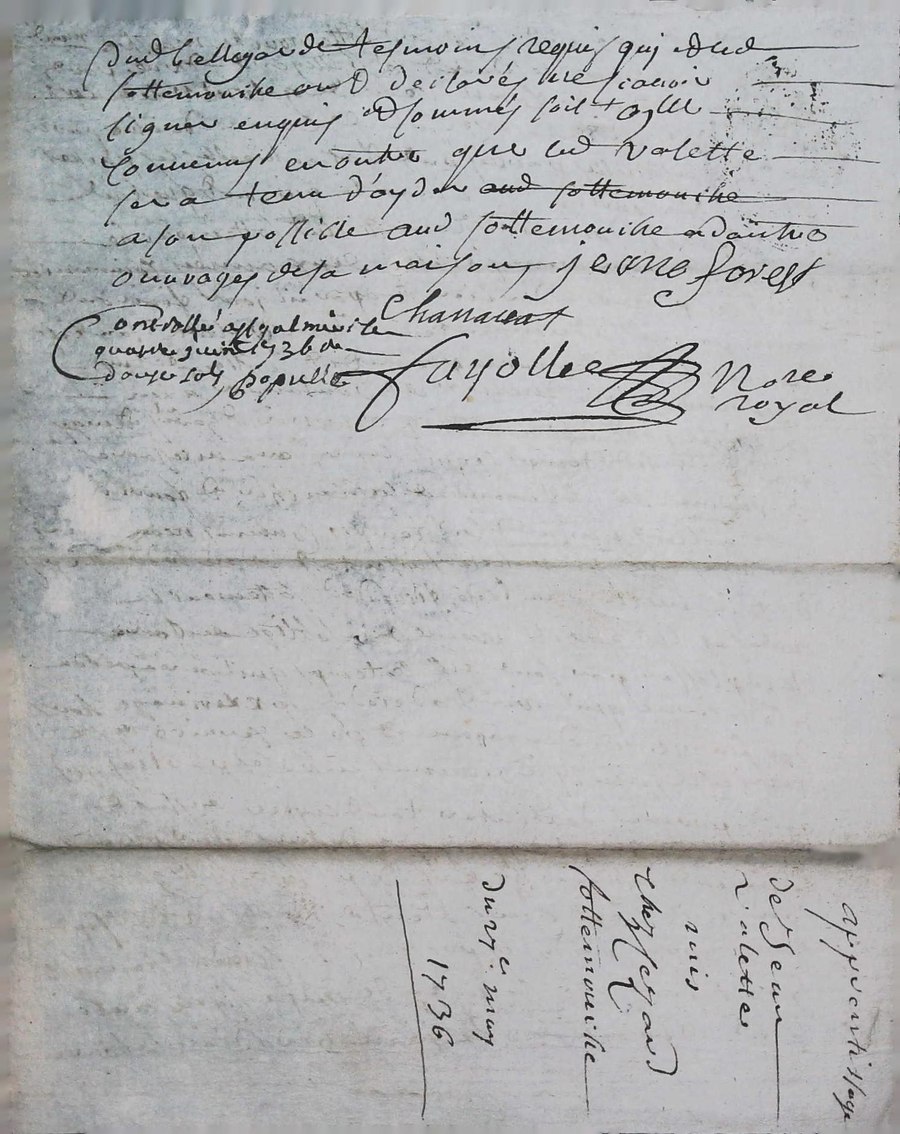 dud bellegarde tesmoins requis qui et led
sottemouche ont declarés ne scavoir
signer enquis et sommés soit
convenus en outre que led valette
sera tenu d'ayder aud sottemouche
a son possible aud sottemouche et dautres
ouvrages de sa maison jeane forest
Chanaceat
Controllé a
quatre juin 1736
douze sols
fayolle Nore
royal
apprentissage
de Jean
Valette
mis
chez leyard
sottemouche
du 27e may
1736